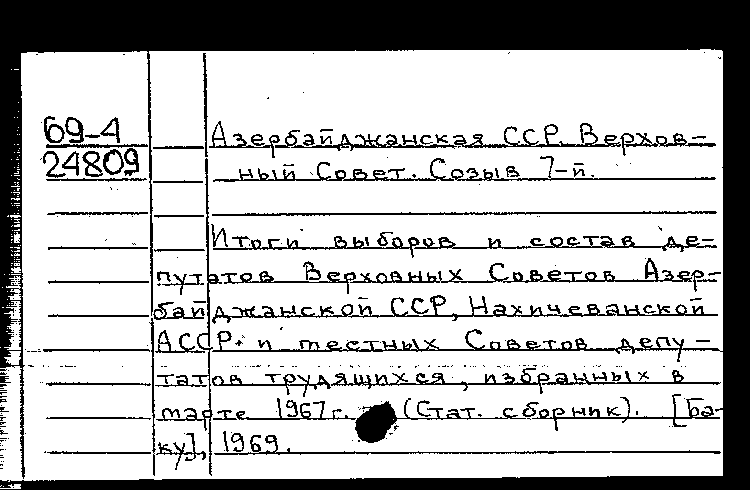 69-4
24809
Азербайджанская ССР. Верхов-
ный Совет. Созыв 7-й.
Итоги выборов и состав де-
путатов Верховных Советов Азер-
байджанской ССР, Нахичеванской
АССР и местных Советов депу-
татов трудящихся, избранных в
марте 1967г. (Стат. сборник). [Ба-
ку], 1969.